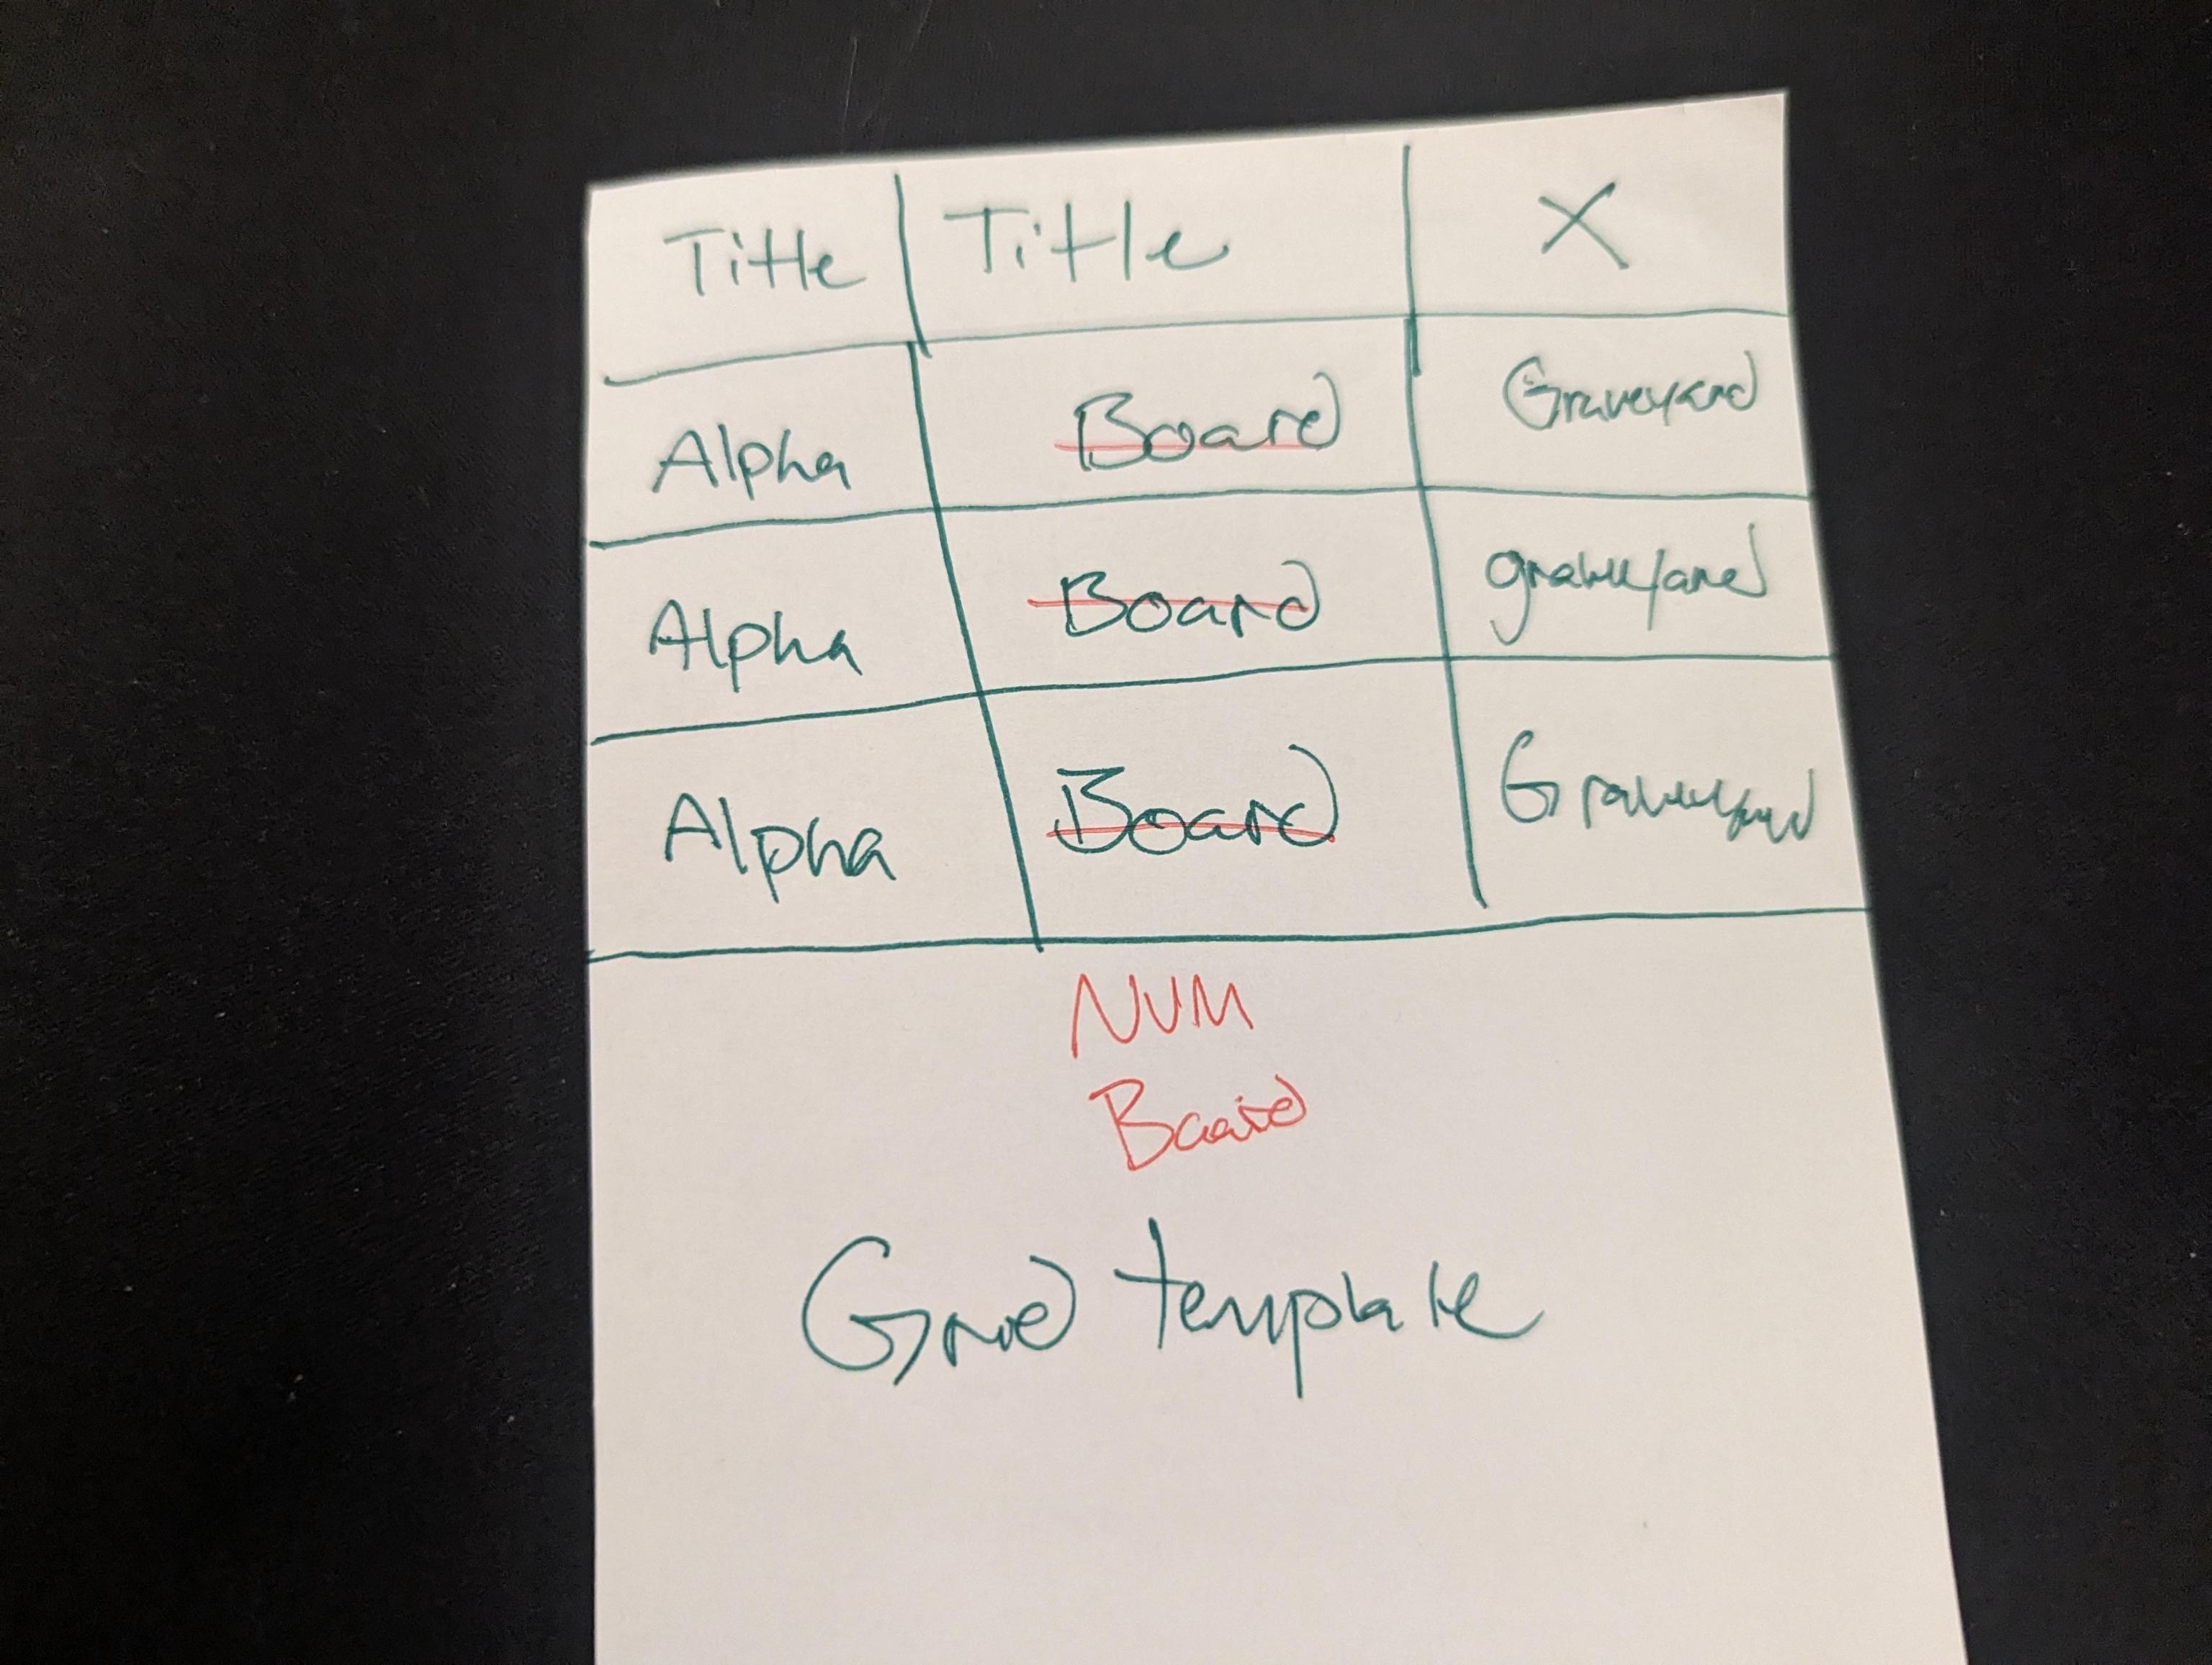 Title Title X
Alpha Board Graveyard
Alpha Board graveyard
Alpha Board Graveyard
NUM
Board
Grid template